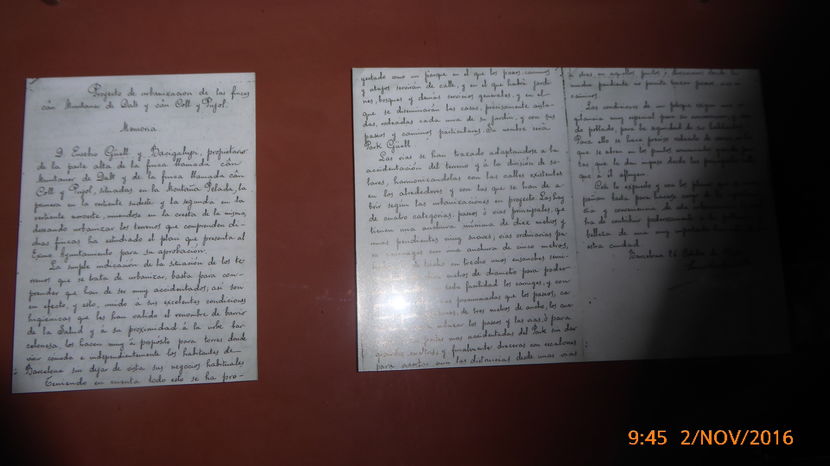 Proyecto de urbanizacion de las fincas
cán Muntaner de Dalt y cán Coll y Pujol.
Memoria
D. Eusebio Güell y Bacigalupi, propietario
de la parte alta de la finca llamada cán
Muntaner de Dalt y de la finca llamada cán
Coll y Pujol, situadas en la Montaña Pelada, la
primera en la vertiente sudeste y la segunda en la
vertiente noroeste, uniendose en la cresta de la misma,
deseando urbanizar los terrenos que comprenden di-
chas fincas ha estudiado el plan que presenta al
Excmo Ayuntamiento para su aprobacion.
La simple indicación de la situacion de los te-
rrenos que se trata de urbanizar, basta para com-
prender que han de ser muy accidentados; asi son
en efecto, y esto, unido á sus excelentes condiciones
higienicas que les han valido el renombre de barrio
de la Salud y á su proximidad á la urbe bar-
celonesa, los hacen muy á proposito para torres donde
vivir comoda e independientemente los habitantes de
Barcelona sin dejar de vista sus negocios habituales
Teniendo en cuenta todo esto se ha pro-
yectado como un parque en el que los paseos, caminos
y atajos servirán de calle, y en el que habrá jardi-
nes, bosques y demás servicios generales, y en el
que se diseminarán las casas, precisamente aisla-
das, rodeadas cada una de su jardin, y con sus
paseos y caminos particulares. Su nombre será
Park Güell
Las vias se han trazado adaptandose a la
accidentación del terreno y á la división de so-
lares, harmonizándolas con las calles existentes
en los alrededores y con las que se han de a-
brir segun las urbanizaciones en proyecto. Las hay
de cuatro categorias; paseos ó vias principales, que
tienen una anchura minima de diez metros y
unas pendientes muy suaves, vias ordinarias
con una anchura de cinco metros,
metros de diametro para poder
facilidad los carruajes, y con
los paseos, ca-
de tres metros de ancho, los cua-
los paseos y las vias, ó para
mas accidentados del Park sin dar
y finalmente directas con escalones
para acortar aun las distancias desde unas vias
á otras, en aquellos puntos
no permita
caminos
Las condiciones de un parque exigen una vi-
gilancia muy especial para su conservación y, caso
de poblado, para la seguridad de sus habitantes.
Para ello se hace preciso rodearlo de una cerca
que se abra en los puntos
tas que le den ingreso desde las principales
que á él afluyen
Con lo expuesto y con los planos que
y conveniencia de
ha de contribuir poderosamente
belleza de una muy importante
esta ciudad
Barcelona 26 Octubre de
9:45 2/NOV/2016